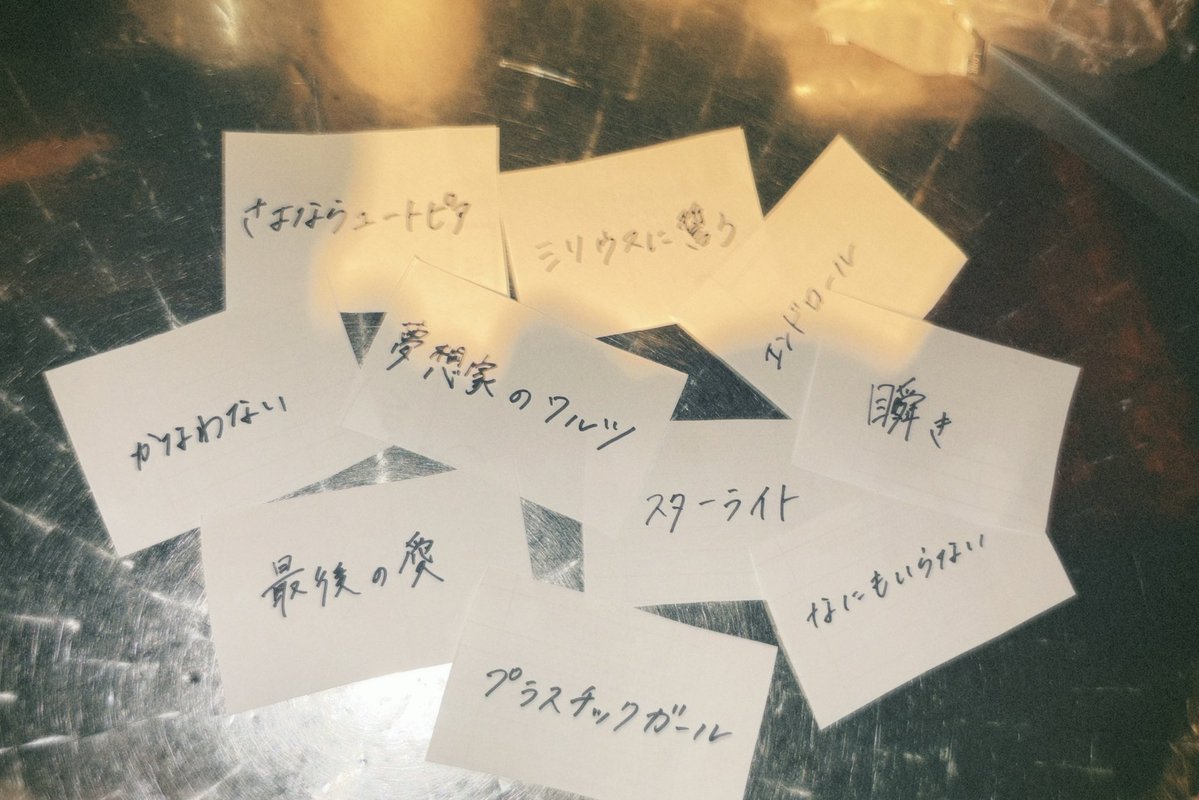 さよならユートピア
ミリウスに誓う
エンドロール
夢想家のワルツ
かなわない
瞬き
スターライト
最後の愛
なにもいらない
プラスチックガール